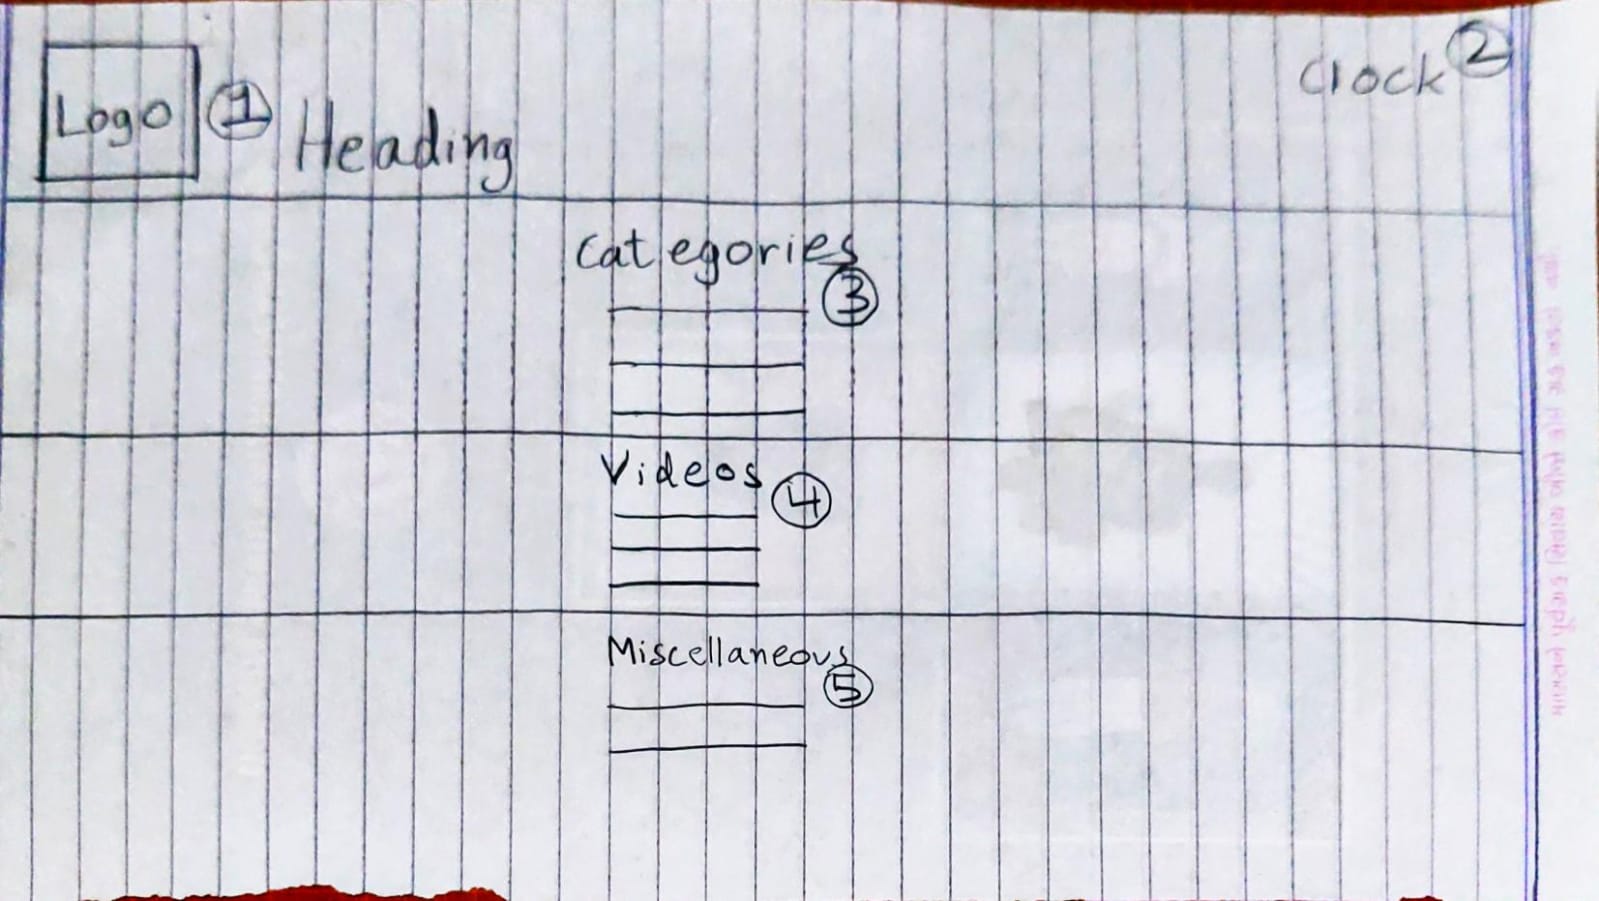 Logo
1
Heading
Clock 2
Categories
3
Videos
4
Miscellaneous
5